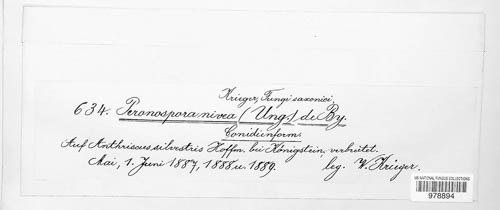 Krieger, Fungi saxonici.
634. Peronospora nivea (Ung.) de By.
Conidienform.
Auf Anthriscus silvestris Hoffm. bei Königstein, verbreitet.
Mai, 1. Juni 1887, 1888 u. 1889. leg. W. Krieger.
US NATIONAL FUNGUS COLLECTIONS
978894